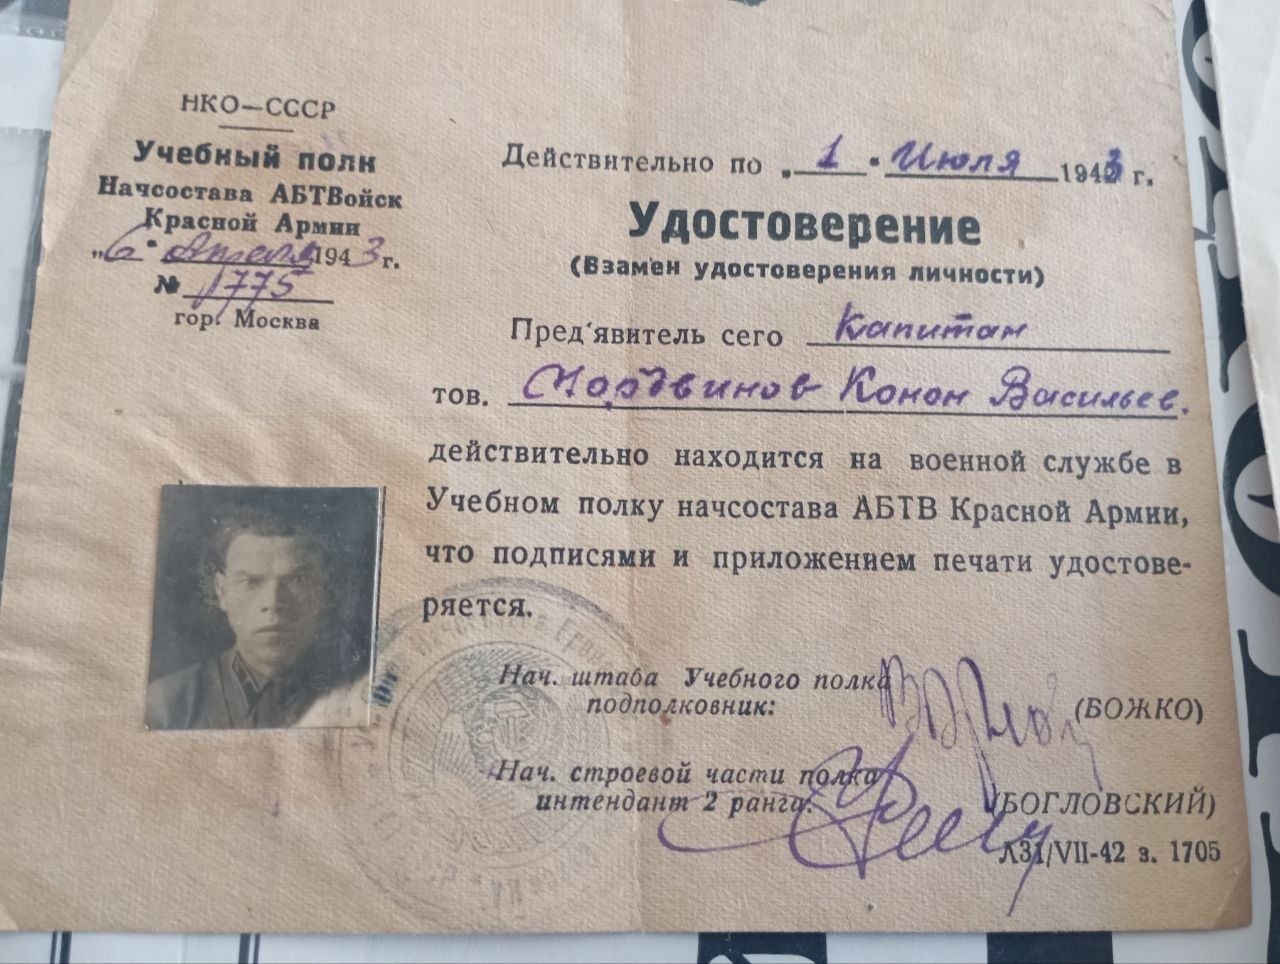 НКО—СССР
Учебный полк
Начсостава АБТВойск
Красной Армии
„6" Апреля 1943 г.
№ 1775
гор. Москва
Действительно по „1" Июля 1943 г.
Удостоверение
(Взамен удостоверения личности)
Пред'явитель сего Капитан
тов. Мордвинов Конон Васильев.
действительно находится на военной службе в
Учебном полку начсостава АБТВ Красной Армии,
что подписями и приложением печати удостове-
ряется.
Нач. штаба Учебного полка
подполковник: (БОЖКО)
Нач. строевой части полка
интендант 2 ранга: (БОГЛОВСКИЙ)
Л31/VII-42 з. 1705